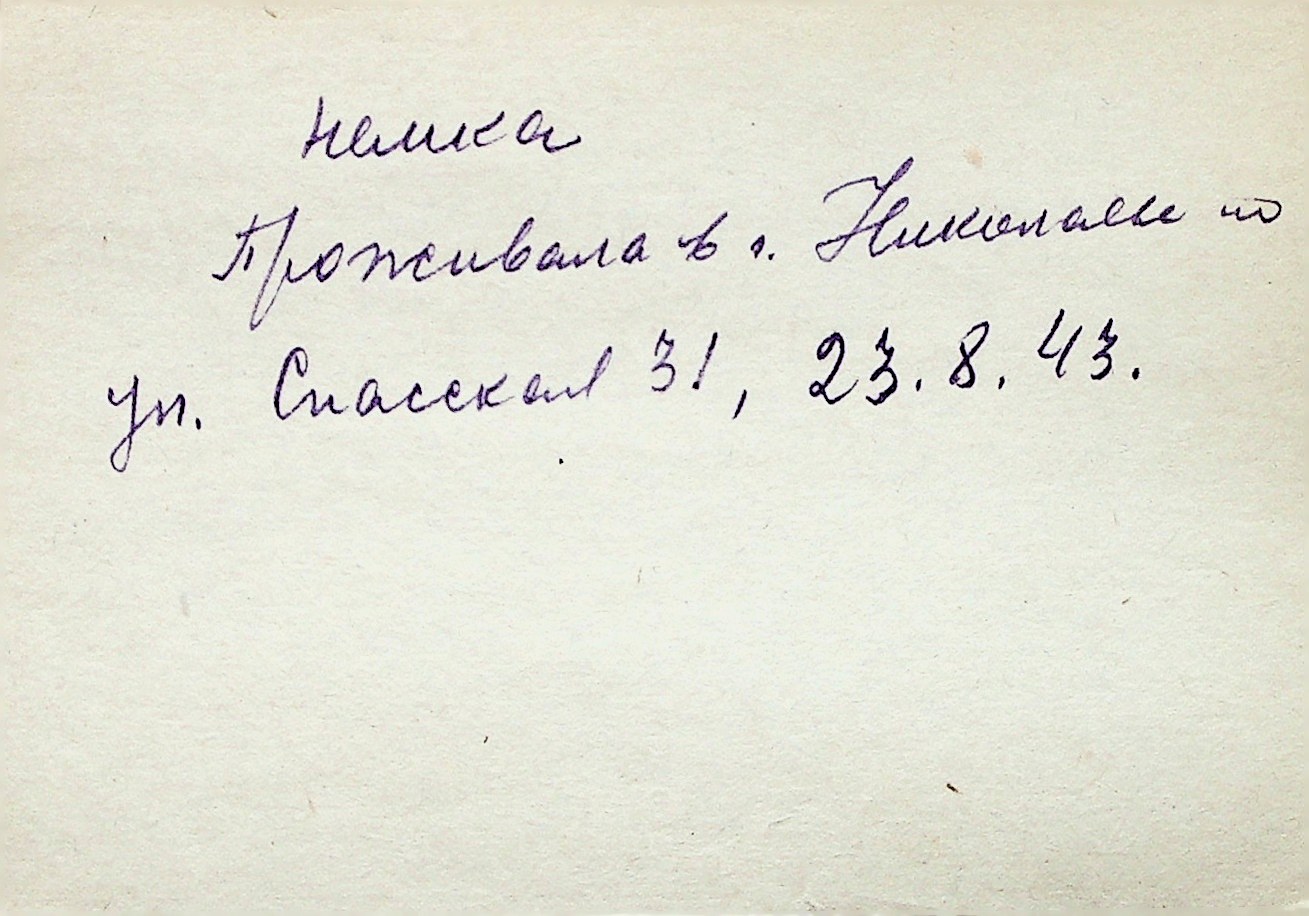 немка
Проживала в г. Николаеве по
ул. Спасская 31, 23.8.43.